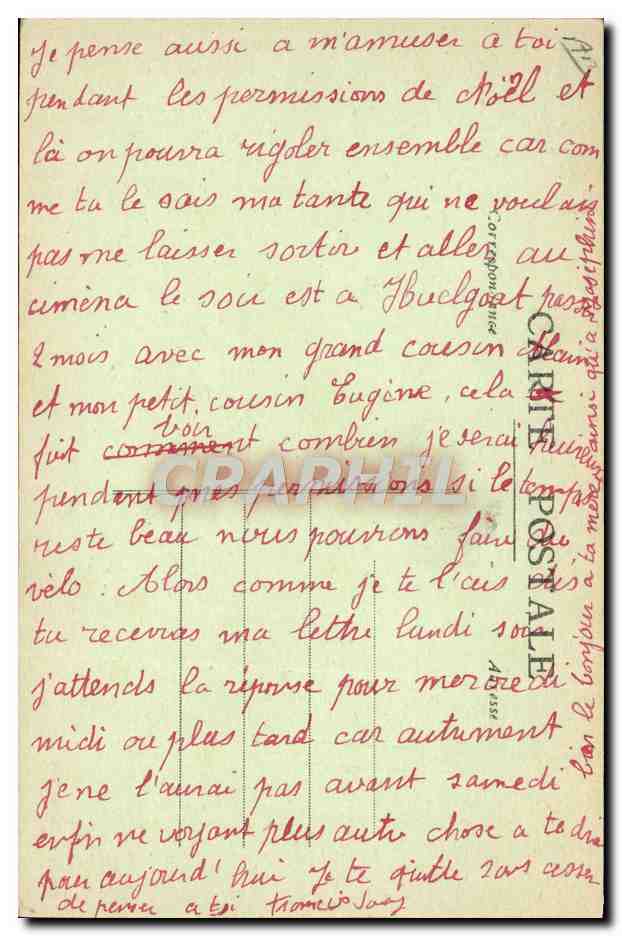 Je pense aussi a m'amuser a toi
pendant les permissions de Noël et
là on pourra rigoler ensemble car com
me tu le sais ma tante qui ne voulais
pas me laisser sortir et aller au
cinéma le soir est a Huelgoat pass
2 mois avec mon grand cousin
et mon petit cousin Eugène, cela
fait comment voir combien je serai heureux
pendent mes permissions si le temps
reste beau nous pourrons faire du
vélo. Alors comme je te l'ais dis
tu recevras ma lettre lundi soir
j'attends la réponse pour mercredi
midi ou plus tard car autrement
je ne l'aurai pas avant samedi
enfin ne voyant plus autre chose a te dire
pour aujourd'hui Je te quitte sans cesser
de penser a toi Francis
bien le bonjour a ta mère ainsi qu'a Joséphine
CARTE POSTALE
Correspondance
Adresse
CPAPHIL